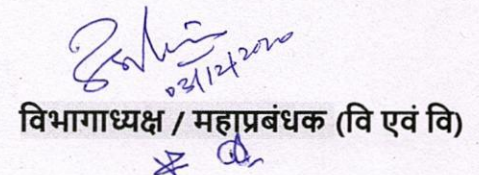 03/12/2020
विभागाध्यक्ष / महाप्रबंधक (वि एवं वि)